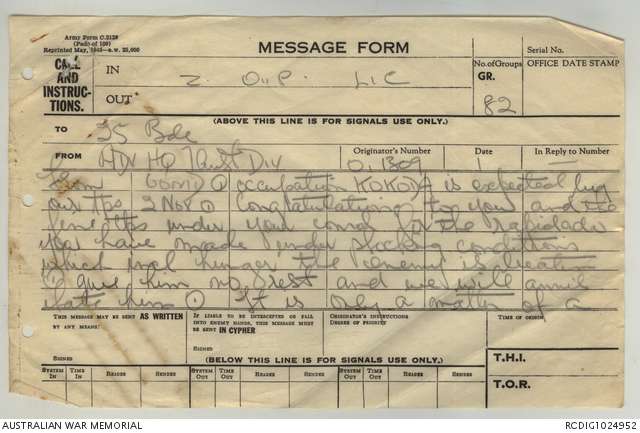 Army Form C.2128
(Pads of 100)
Reprinted May, 1942
MESSAGE FORM
Serial No.
CALL
AND
INSTRUC-
TIONS.
IN
Z O.P. L1C
No. of Groups
GR.
82
OFFICE DATE STAMP
OUT
(ABOVE THIS LINE IS FOR SIGNALS USE ONLY.)
TO
25 Bde
Originator's Number
Date
In Reply to Number
FROM
ADV HQ 7 Aust Div
O.1309
1
—
From COMD occupation KOKODA is expected by
our tps 2 Nov congratulations to you and the
fine tps under your comd for the
you have made under shocking conditions
which incl hunger the enemy is
give him no rest and we will annihi
late him It is only a matter of a
THIS MESSAGE MAY BE SENT AS WRITTEN
BY ANY MEANS:
SIGNED
IF LIABLE TO BE INTERCEPTED OR FALL
INTO ENEMY HANDS, THIS MESSAGE MUST
BE SENT IN CYPHER
SIGNED
ORIGINATOR'S INSTRUCTIONS
DEGREE OF PRIORITY
TIME OF ORIGIN
(BELOW THIS LINE IS FOR SIGNALS USE ONLY.)
T.H.I.
T.O.R.
SYSTEM IN
TIME IN
READER
SENDER
SYSTEM OUT
TIME OUT
READER
SENDER
SYSTEM OUT
TIME OUT
READER
SENDER
AUSTRALIAN WAR MEMORIAL
RCDIG1024952